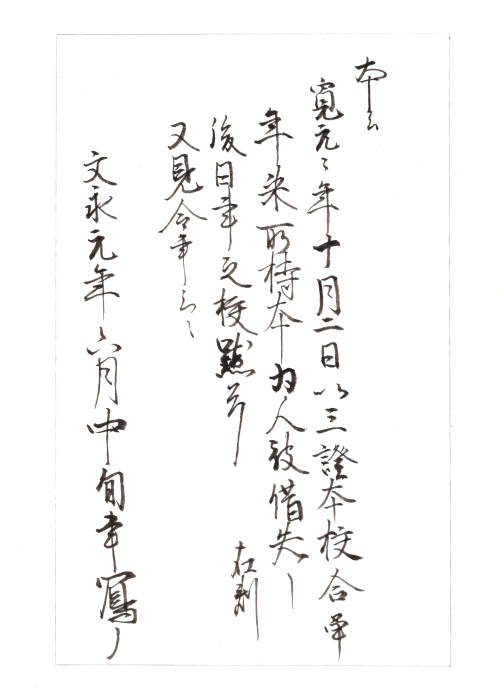 本云
寛元々年十月二日以三證本校合畢
年来所持本為人被借失了
後日書之校點了
在判
又見合畢云々
文永元年六月中旬書寫了